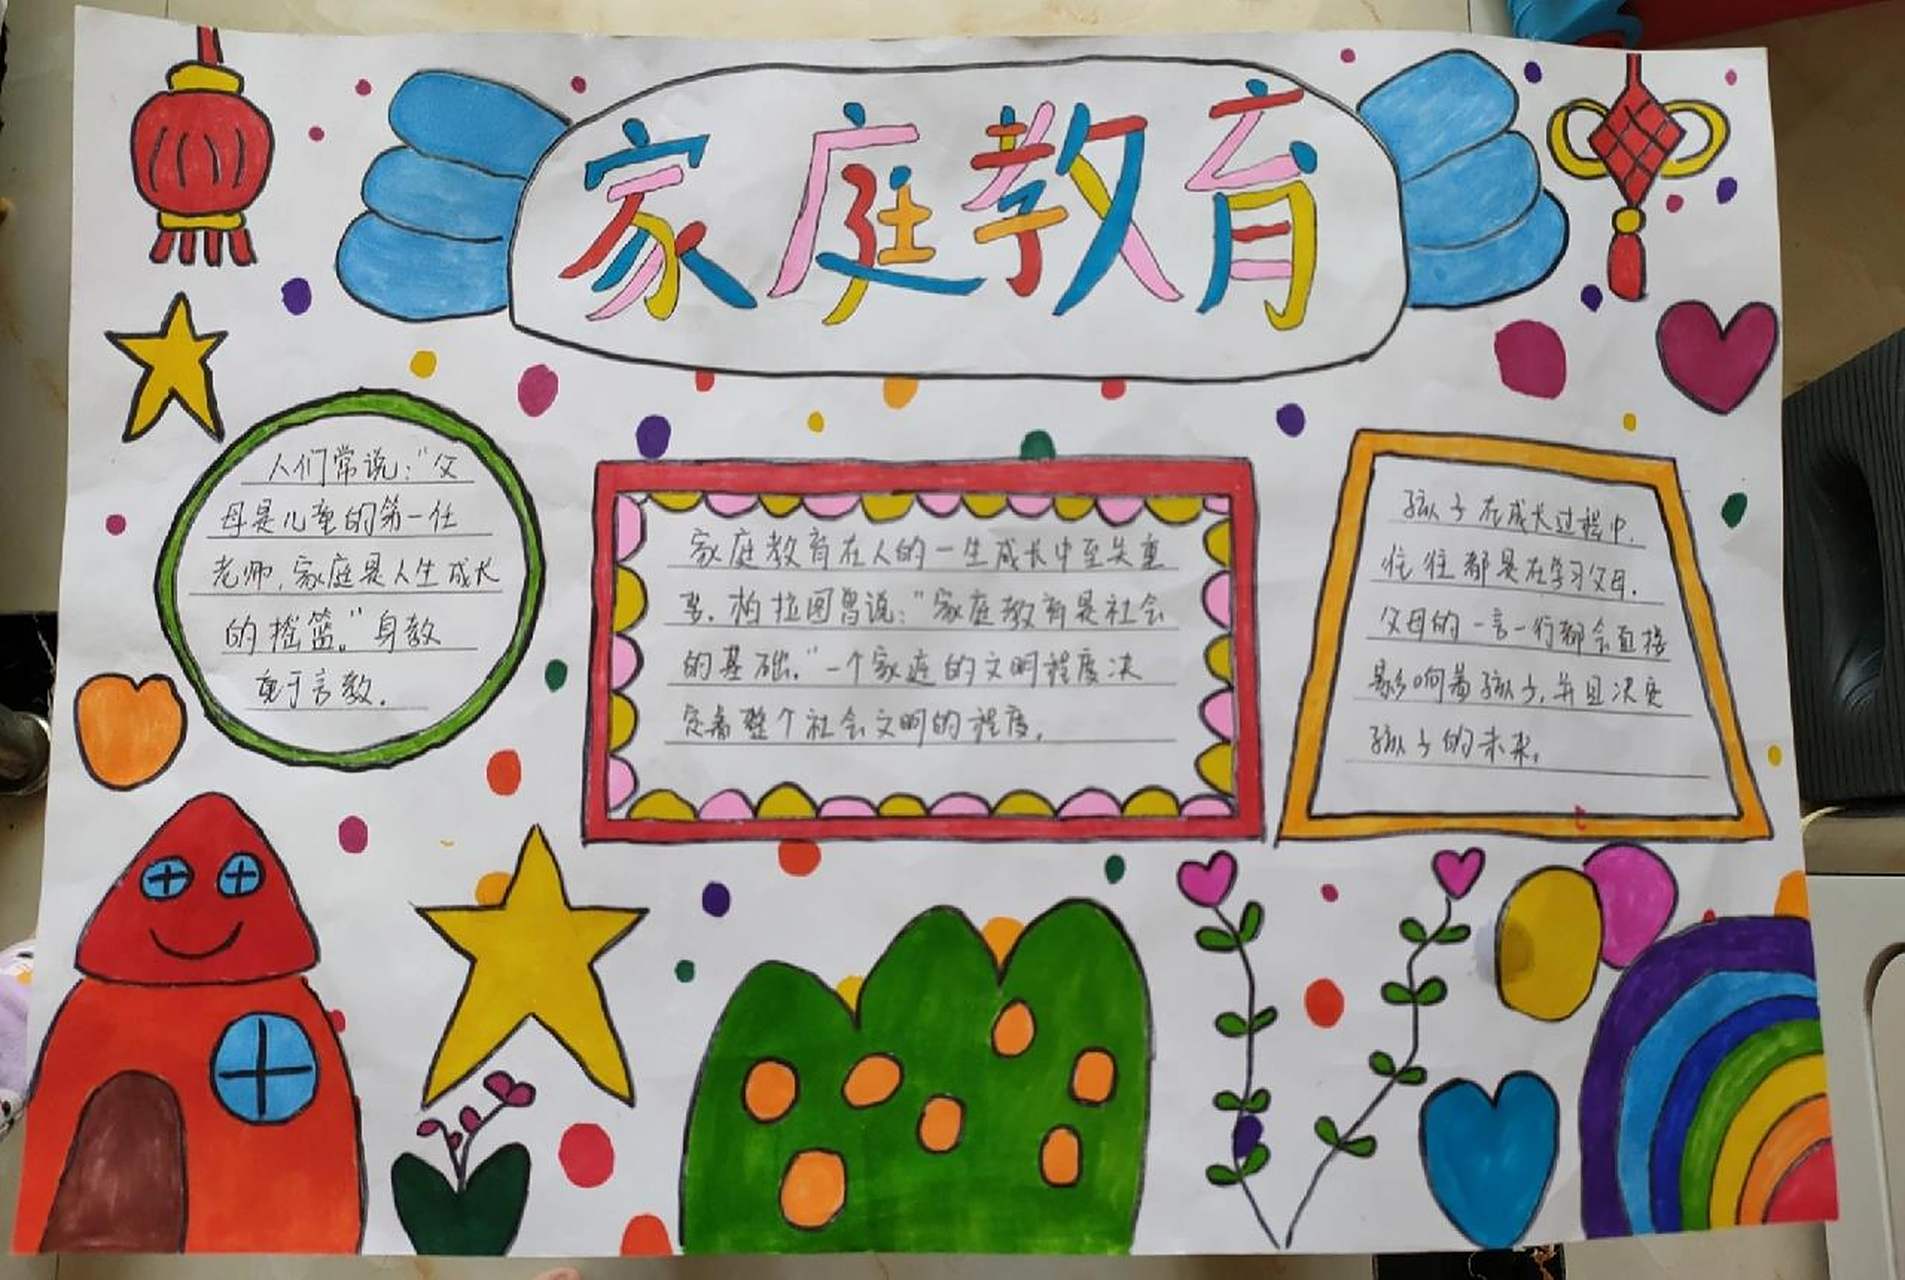 家庭教育
人们常说：“父
母是儿童的第一任
老师，家庭是人生成长
的摇篮。”身教
重于言教。
家庭教育在人的一生成长中至关重
要。柏拉图曾说：“家庭教育是社会
的基础。”一个家庭的文明程度决
定着整个社会文明的程度。
孩子在成长过程中，
往往都是在学习父母。
父母的一言一行都会直接
影响着孩子，并且决定
孩子的未来。